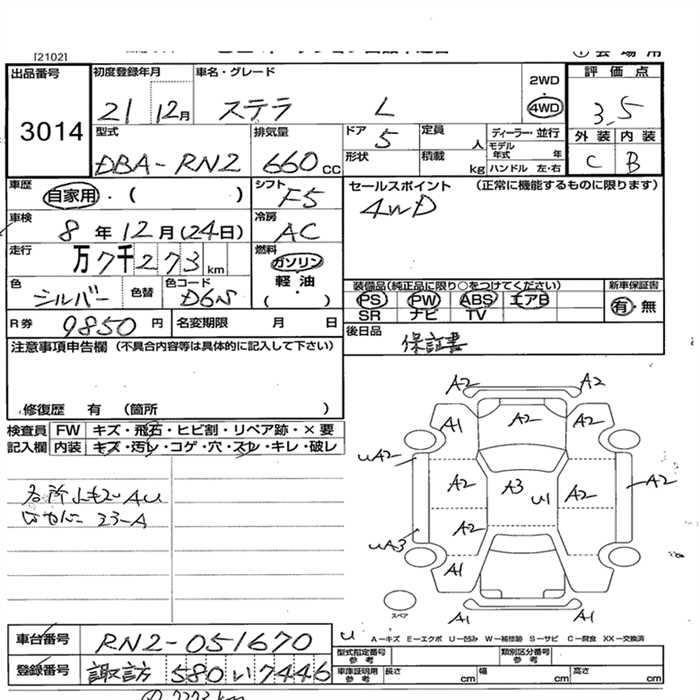 [21021]
出品番号 初度登録年月 車名・グレード 2WD・4WD 評価点
3014 21 12月 ステラ L 3.5
外装 内装
C B
型式 排気量 ドア 定員 ディーラー・並行
DBA-RN2 660cc 5 人 モデル年式 年
形状 積載 kg ハンドル 左・右
車歴 自家用・( ) シフト F5 セールスポイント (正常に機能するものに限ります)
4WD
車検 8年12月(24日) 冷房 AC
走行 万7千273km 燃料 ガソリン・軽油・( )
色 シルバー 色替 色コード D6S
装備品(純正品に限り○をつけてください) 新車保証書
PS PW ABS エアB 有・無
SR ナビ TV
R券 9850円 名変期限 月 日
後日品 保証書
注意事項申告欄 (不具合内容等は具体的に記入して下さい)
修復歴 有 (箇所 )
検査員 FW キズ・飛石・ヒビ割・リペア跡・×要
記入欄 内装 キズ・汚レ・コゲ・穴・スレ・キレ・破レ
AU
23-A
A2 A2
A1 A2 A1
UA2 A2 A3 U1 A2 A2
UA3 A2
A1 A1
A1 A1
スペア
U A-キズ E-エクボ U-凹み W-補修跡 S-サビ C-腐食 XX-交換済
車台番号 RN2-051670
型式指定番号 参考 類別区分番号 参考
登録番号 諏訪 580 い 7446
車庫証明用 参考 長さ cm 幅 cm 高さ cm